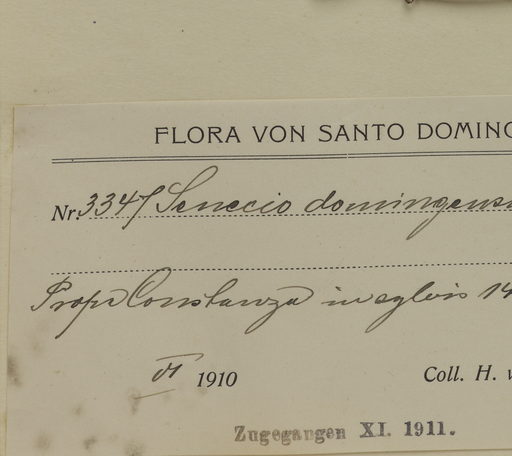 FLORA VON SANTO DOMINGO
Nr. 3347 Senecio domingensi
Prope Constanza in sylvis 14
VI 1910 Coll. H. v
Zugegangen XI. 1911.